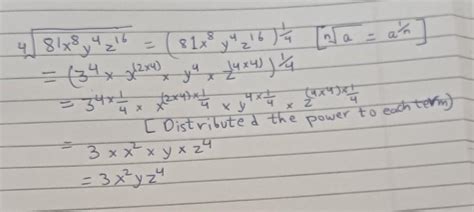 ⁴√81x⁸y⁴z¹⁶ = (81x⁸ y⁴ z¹⁶)^¼ [ⁿ√a = a^(1/n)]
= (3⁴ × x^(2×4) × y⁴ × z^(4×4))^¼
= 3^(4×¼) × x^((2×4)×¼) × y^(4×¼) × z^((4×4)×¼)
[Distributed the power to each term)
= 3 × x² × y × z⁴
= 3x²yz⁴